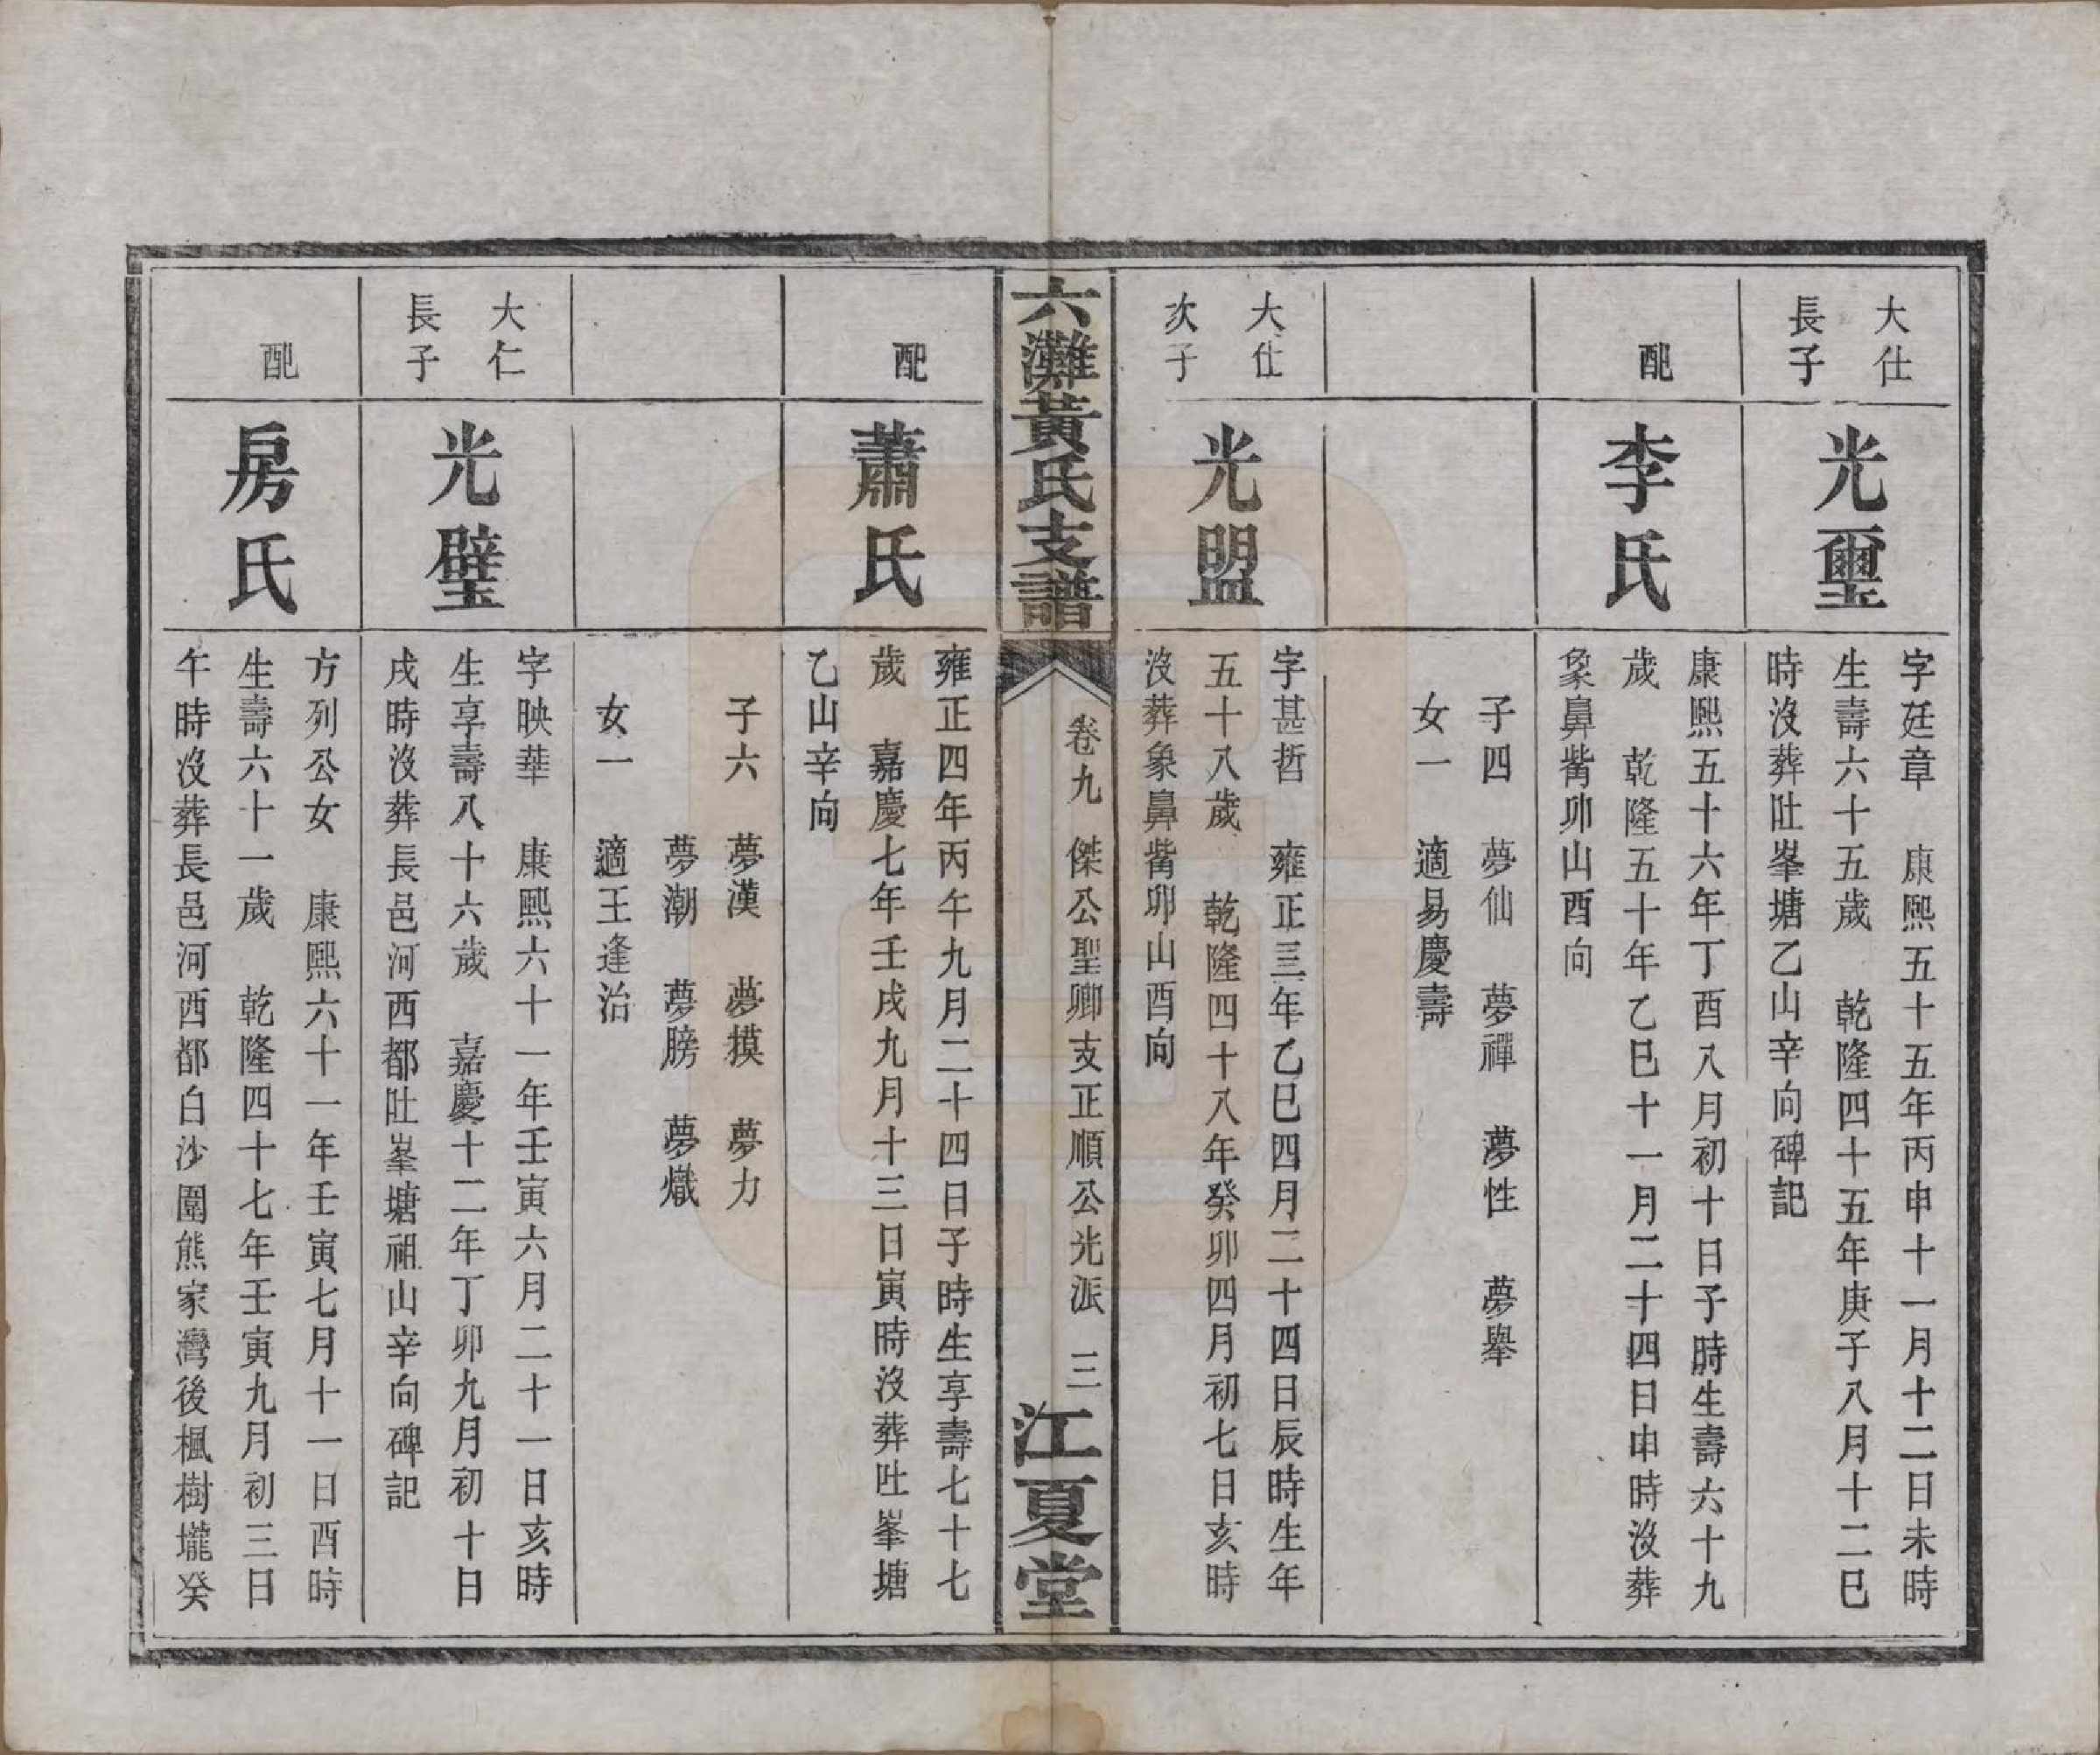 大仕
長子
光璽
字廷章　康熙五十五年丙申十一月十二日未時
生壽六十五歲　乾隆四十五年庚子八月十二巳
時沒葬吐峯塘乙山辛向碑記
配
李氏
康熙五十六年丁酉八月初十日子時生壽六十九
歲　乾隆五十年乙巳十一月二十四日申時沒葬
象鼻嘴卯山酉向
子四　夢仙　夢禪　夢性　夢舉
女一　適易慶壽
大仕
次子
光盟
字甚哲　雍正三年乙巳四月二十四日辰時生年
五十八歲　乾隆四十八年癸卯四月初七日亥時
沒葬象鼻嘴卯山酉向
六灘黃氏支譜
卷九　傑公聖卿支正順公光派　三
江夏堂
配
蕭氏
雍正四年丙午九月二十四日子時生享壽七十七
歲　嘉慶七年壬戌九月十三日寅時沒葬吐峯塘
乙山辛向
子六　夢漢　夢摸　夢力
夢潮　夢膀　夢熾
女一　適王逢治
大仁
長子
光璧
字映華　康熙六十一年壬寅六月二十一日亥時
生享壽八十六歲　嘉慶十二年丁卯九月初十日
戌時沒葬長邑河西都吐峯塘祖山辛向碑記
配
房氏
方列公女　康熙六十一年壬寅七月十一日酉時
生壽六十一歲　乾隆四十七年壬寅九月初三日
午時沒葬長邑河西都白沙圍熊家灣後楓樹壠癸